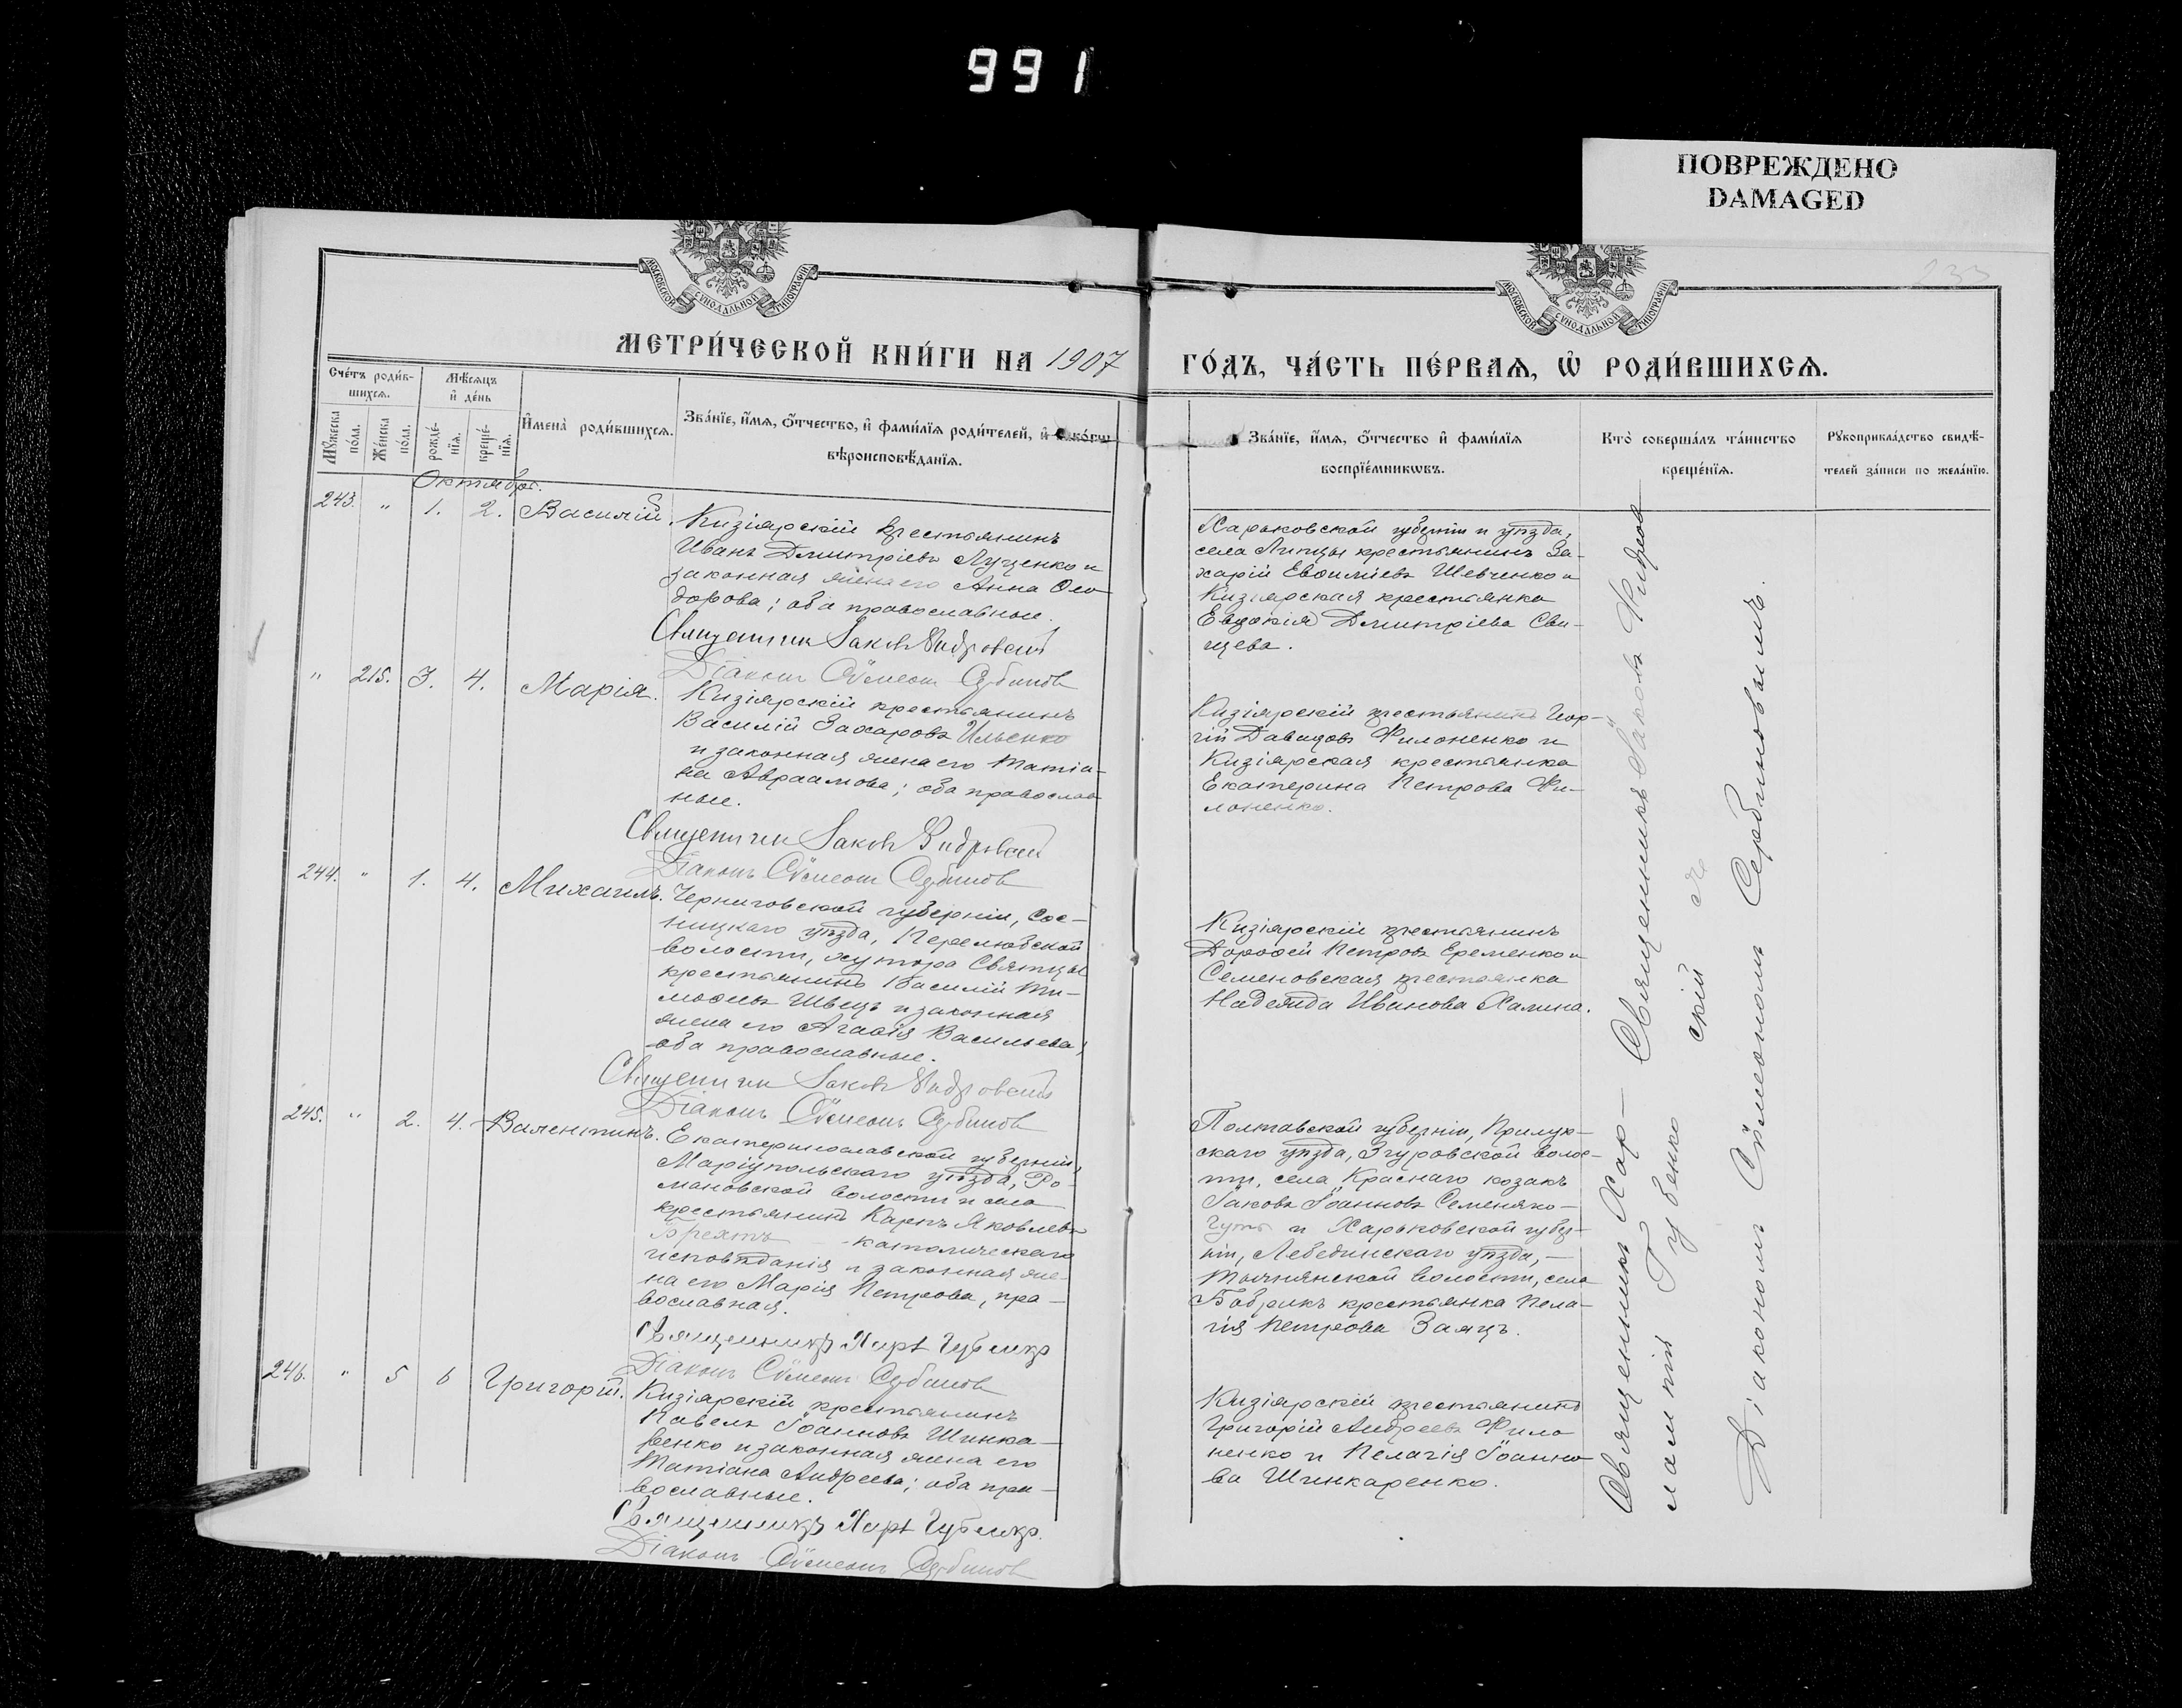 991
ПОВРЕЖДЕНО
DAMAGED
233
МОСКОВСКОЙ СѴНОДАЛЬНОЙ ТИПОГРАФІИ
МОСКОВСКОЙ СѴНОДАЛЬНОЙ ТИПОГРАФІИ
МЕТРИ́ЧЕСКОЙ КНИ́ГИ НА 1907
ГО́ДЪ, ЧА́СТЬ ПЕ́РВАѦ, Ѡ҆ РОДИ́ВШИХСѦ.
Сче́тъ роди́в-
шихсѧ.
Мꙋ́жеска по́ла.
Же́нска по́ла.
Мѣ́сѧцъ
и҆ де́нь
рожде́-
нїѧ.
креще́-
нїѧ.
И҆мена̀ роди́вшихсѧ.
Зва́нїе, и҆́мѧ, ѻ҆́тчество, и҆ фами́лїѧ роди́телей, и҆ како́гѡ
вѣроисповѣ́данїѧ.
Зва́нїе, и҆́мѧ, ѻ҆́тчество и҆ фами́лїѧ
воспрїе́мникѡвъ.
Кто̀ соверша́лъ та́инство
креще́нїѧ.
Рꙋкоприкла́дство свидѣ́-
телей за́писи по жела́нїю.
Октябрь.
243. " 1. 2. Василій.
Кизіярскій крестьянинъ
Иванъ Дмитріевъ Луценко и
законная жена его Анна Ѳео-
дорова; оба православные.
Священник Іаковъ
Діаконъ Сѵмеонъ Сербиновъ
Харьковской губерніи и уѣзда,
села Липцы крестьянинъ За-
харій Евѳиміевъ Шевченко и
Кизіярская крестьянка
Евдокія Дмитріева Сви-
щева.
" 215. 3. 4. Марія.
Кизіярскій крестьянинъ
Василій Захаровъ Ильенко
и законная жена его Татіа-
на Авраамова; оба православ-
ные.
Священник Іаковъ
Діаконъ Сѵмеонъ Сербиновъ
Кизіярскій крестьянинъ Геор-
гій Давидовъ Филоненко и
Кизіярская крестьянка
Екатерина Петрова Фи-
лоненко.
244. " 1. 4. Михаилъ.
Черниговской губерніи, Сос-
ницкаго уѣзда, Перелюбской
волости, хутора Святцы
крестьянинъ Василій Ти-
моѳеевъ Швецъ и законная
жена его Агаѳія Васильева;
оба православные.
Священник Іаковъ
Діаконъ Сѵмеонъ Сербиновъ
Кизіярскій крестьянинъ
Дороѳей Петровъ Еременко и
Семеновская крестьянка
Надежда Иванова Халина.
245. " 2. 4. Валентинъ.
Екатеринославской губерніи,
Маріупольскаго уѣзда, Ро-
мановской волости и села
крестьянинъ Карпъ Яковлевъ
Брехтъ - католическаго
исповѣданія и законная же-
на его Марія Петрова, пра-
вославная.
Священникъ Харл. Губенко
Діаконъ Сѵмеонъ Сербиновъ
Полтавской губерніи, Прилук-
скаго уѣзда, Згуровской волос-
ти, села Краснаго козакъ
Іаковъ Іоанновъ Семеняко-
и Харьковской губер-
ніи, Лебединскаго уѣзда,
волости, села
Бобрикъ крестьянка Пела-
гія Петрова Заяцъ.
246. " 5 6 Григорій.
Кизіярскій крестьянинъ
Павелъ Іоанновъ Шинка-
ренко и законная жена его
Татіана Андреева; оба пра-
вославные.
Священникъ Харл. Губенко.
Діаконъ Сѵмеонъ Сербиновъ
Кизіярскій крестьянинъ
Григорій Андреевъ Фило
ненко и Пелагія Іоанно-
ва Шинкаренко.
Священники Хар- Священникъ Іаковъ
лампій Губенко скій съ
Діакономъ Сѵмеономъ Сербиновымъ.